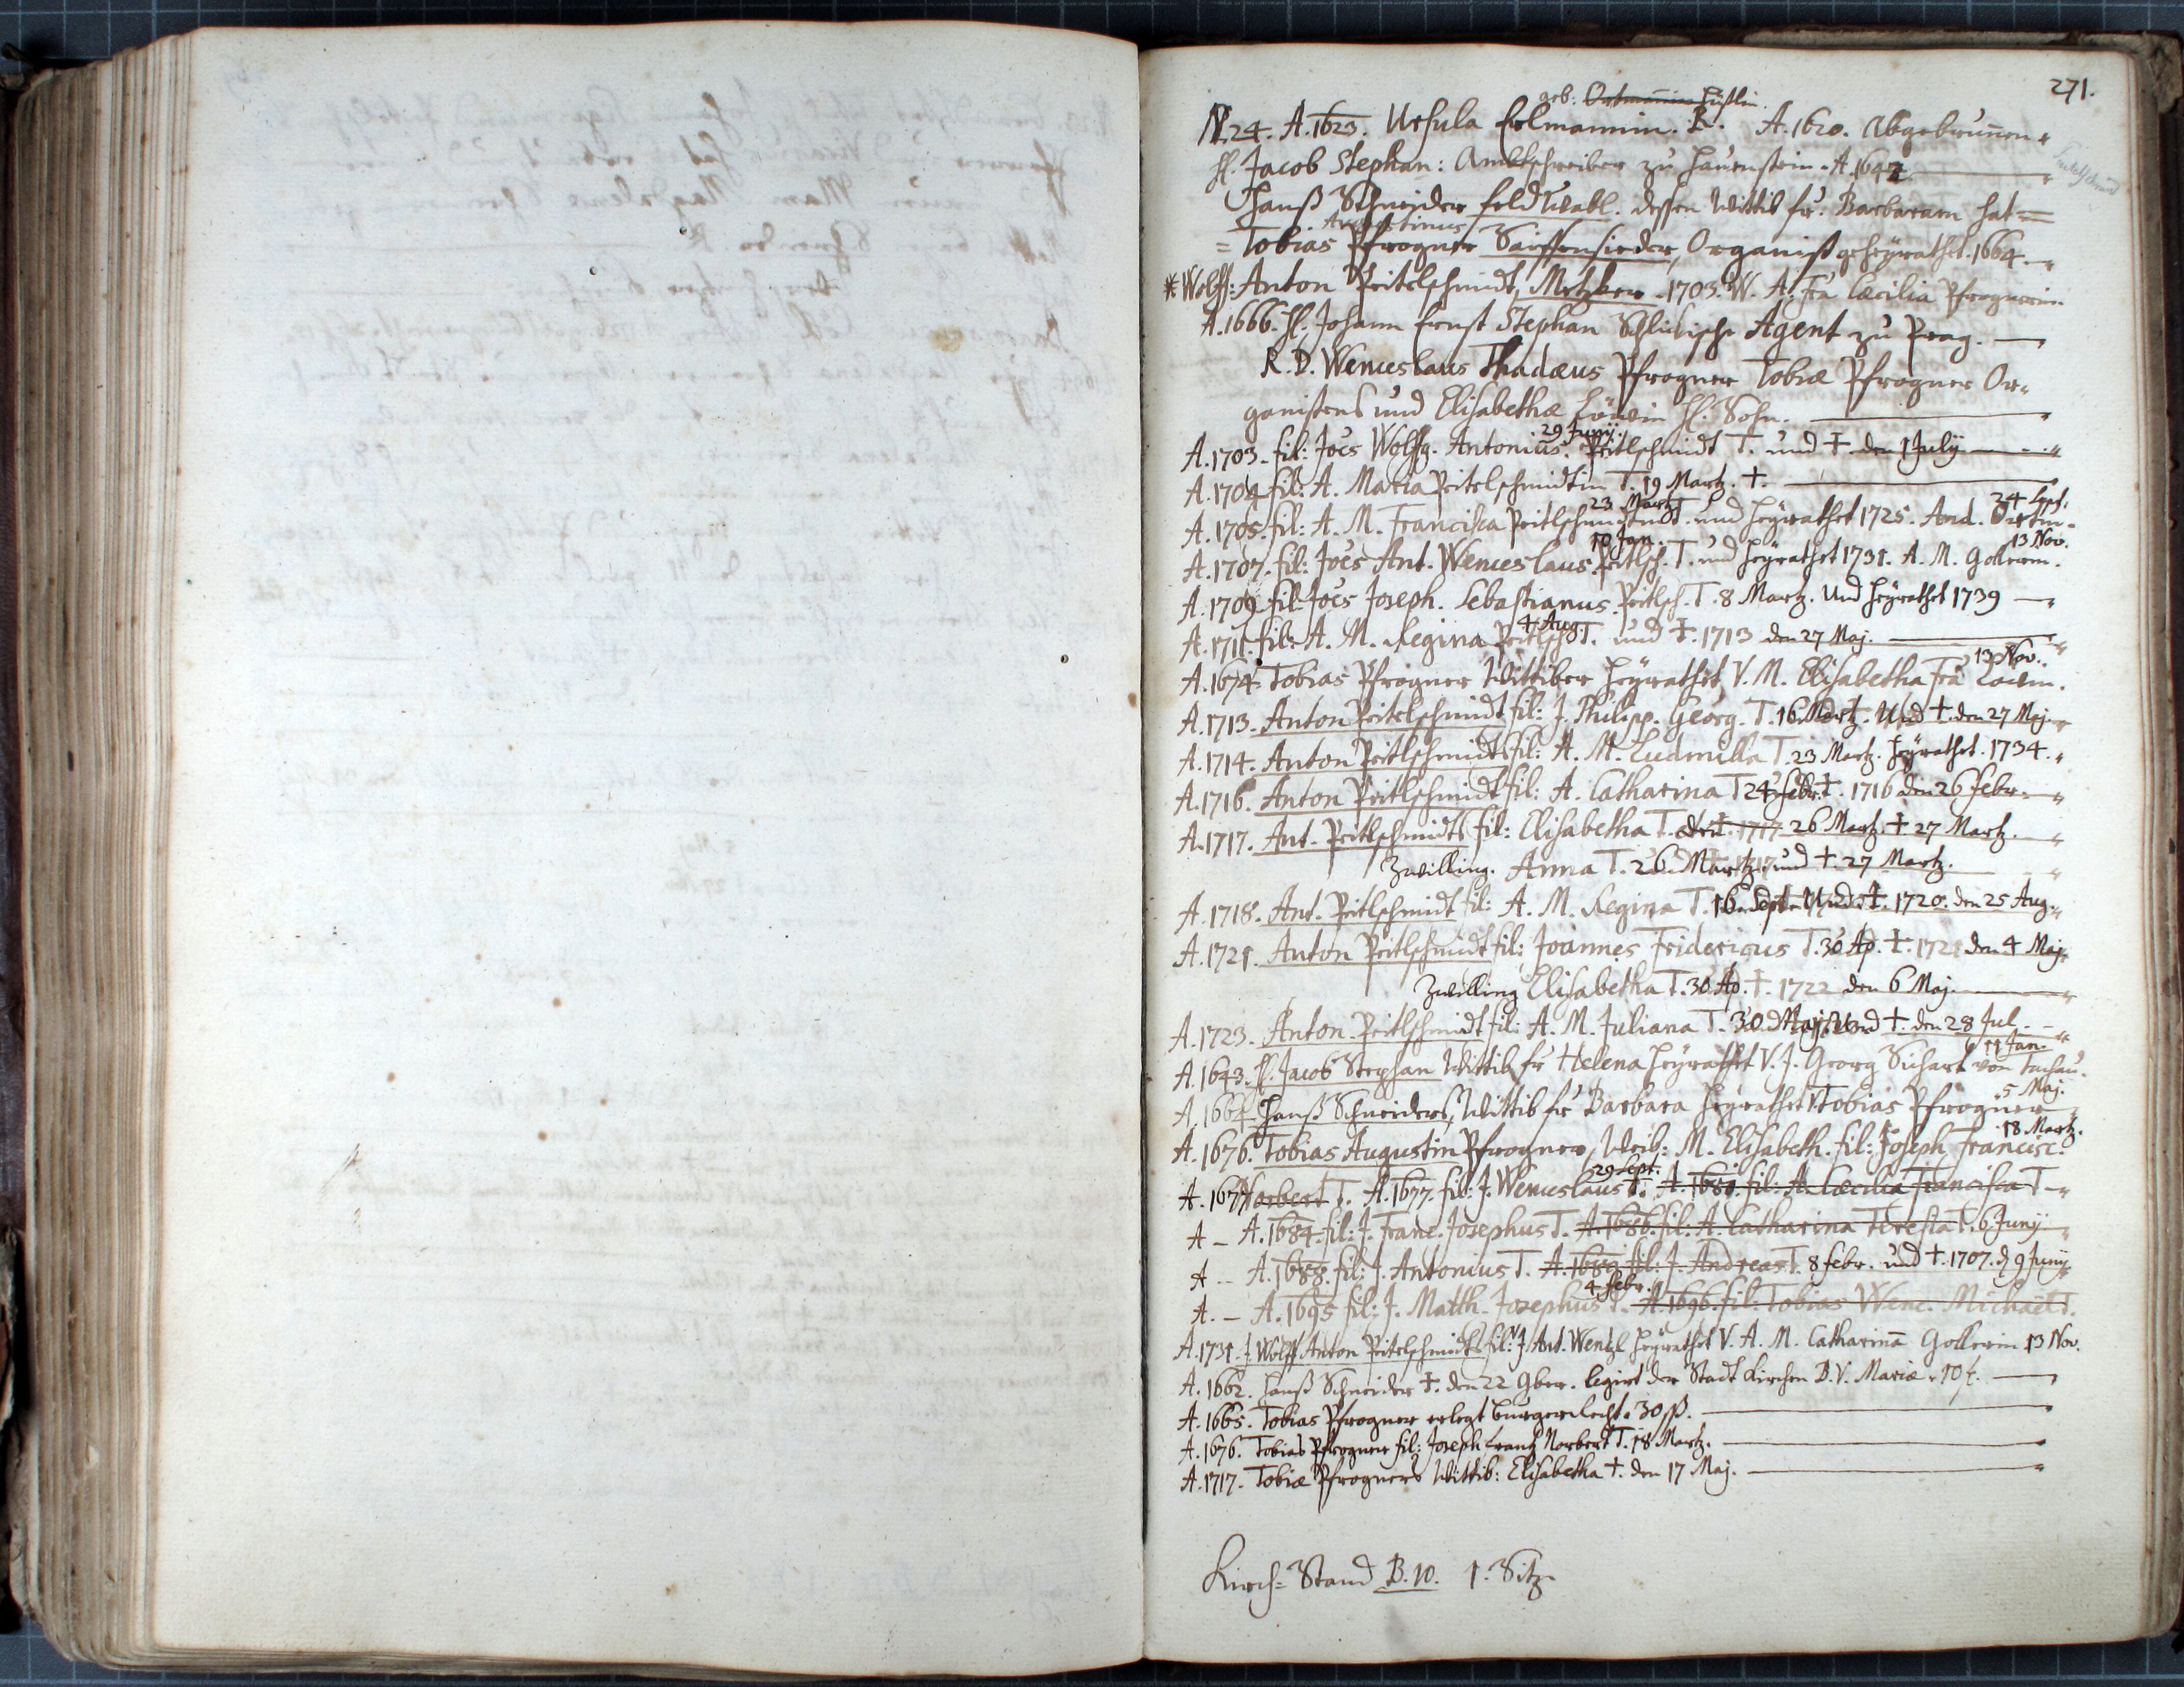 271.
geb: Ortmannin Hüstlin.
N. 24. A. 1623. Ursula Erlmannin. R. A. 1620. Abgebrunnen
H. Jacob Stephan: Ambtschreiber zu Hauenstein. A. 1642
Hanß Schneider feldWabl. dessen Wittib fr. Barbaram hat =
Augustinus
= Tobias Pfrogner Saiffensieder, Organist geheÿrathet. 1664.
* Wolff: Anton Peitelschmidt, Metzker. 1703. W. A. Fra Cæcilia Pfrognerin.
A. 1666. H. Johann Ernst Stephan Schlickische Agent zu Prag.
R. D. Wenceslaus Thadæus Pfrogner Tobiæ Pfrogner Or-
ganistens und Elisabethæ Löwin H. Sohn.
A. 1703. fil: Joes Wolffg. Antonius. 29 Junij. Peitlschmidt T. und †. den 1 Julij
A. 1704 fil: A. Maria Peitelschmidtin T. 19 Martz. †.
A. 1705. fil: A. M. Francisca Peitlschmidtin 23 Martz T. und heÿrathet 1725. And. Ortm. 24 Sept.
A. 1707. fil: Joes Ant. Wenceslaus. 10 Jan. Peitlsch. T. und heÿrathet 1731. A. M. Gollerin. 13 Nov.
A. 1709 fil: Joes Joseph. Sebastianus. Peitlsch. T. 8 Martz. Und heÿrathet 1739
A. 1711. fil: A. M. Regina Peitlsch 4 Aug. T. und †. 1713 den 27 Maj.
A. 1674. Tobias Pfrogner Wittiber heÿrathet V. M. Elisabetha Fra Löwin. 13 Nov.
A. 1713. Anton Peitelschmidt fil: J. Philipp. Georg. T. 16 Martz. Und †. den 27 Maj.
A. 1714. Anton Peitlschmidt fil: A. M. Ludmilla T. 23 Martz. heÿrathet. 1734.
A. 1716. Anton Peitlschmidt fil: A. Catharina T 24 Febr. †. 1716 den 26 Febr.
A. 1717. Ant. Peitlschmidt fil: Elisabetha T. 26 Martz. † 27 Martz.
Zwilling. Anna T. 26 Martz. und †. 27 Martz.
A. 1718. Ant. Peitlschmidt fil: A. M. Regina T. 16 Sept. Und †. 1720. den 25 Aug.
A. 1721. Anton Peitlschmidt fil: Joannes Fridericus T. 30 Ap. †. 1721 den 4 Maj.
Zwilling Elisabetha T. 30 Ap. †. 1722 den 6 Maj.
A. 1723. Anton Peitlschmidt fil: A. M. Juliana T. 30 Maj. Und †. den 28 Jul.
A. 1643. H. Jacob Stephan Wittib fr Helena heÿrathet V. J. Georg Sichart von Tachau. 11 Jan.
A. 1664 Hanß Schneiders, Wittib fr Barbara heÿrathet Tobias Pfrogner 5 Maj.
A. 1676. Tobias Augustin Pfrogner, Weib: M. Elisabeth. fil: Joseph Francisc. 18 Martz.
A. 1677 Norbert T. A. 1677. fil: J. Wenceslaus 29 Sept. T. A. 1681. fil: A. Cæcilia Francisca T
A _ A. 1684. fil: J. Franc. Josephus T. A. 1686. fil: A. Catharina Teresia T. 6 Junij
A _ A. 1688. fil: J. Antonius T. A. 1689. fil: J. Andreas T. 8 Febr. und †. 1707. d 9 Junij
A. _ A. 1695 fil: J. Matth. Josephus 4 Febr. T. A. 1696. fil: Tobias Wenc. Michael T.
A. 1731. J. Wolff Anton Peitelschmidt fil: J. Ant. Wentzl heÿrathet V. A. M. Catharina Gollerin 13 Nov.
A. 1662. Hanß Schneider †. den 22 9ber. legirt der Stadt Kirchen B. V. Mariæ. 10 f.
A. 1665. Tobias Pfrogner erlegt burgerrecht. 30 ß.
A. 1676. Tobias Pfrogner fil: Joseph Frantz Norbert T. 18 Martz.
A. 1717. Tobiæ Pfrogners Wittib: Elisabetha †. den 17 Maj.
Kirch=Stand B. 10. 1. Sitz.